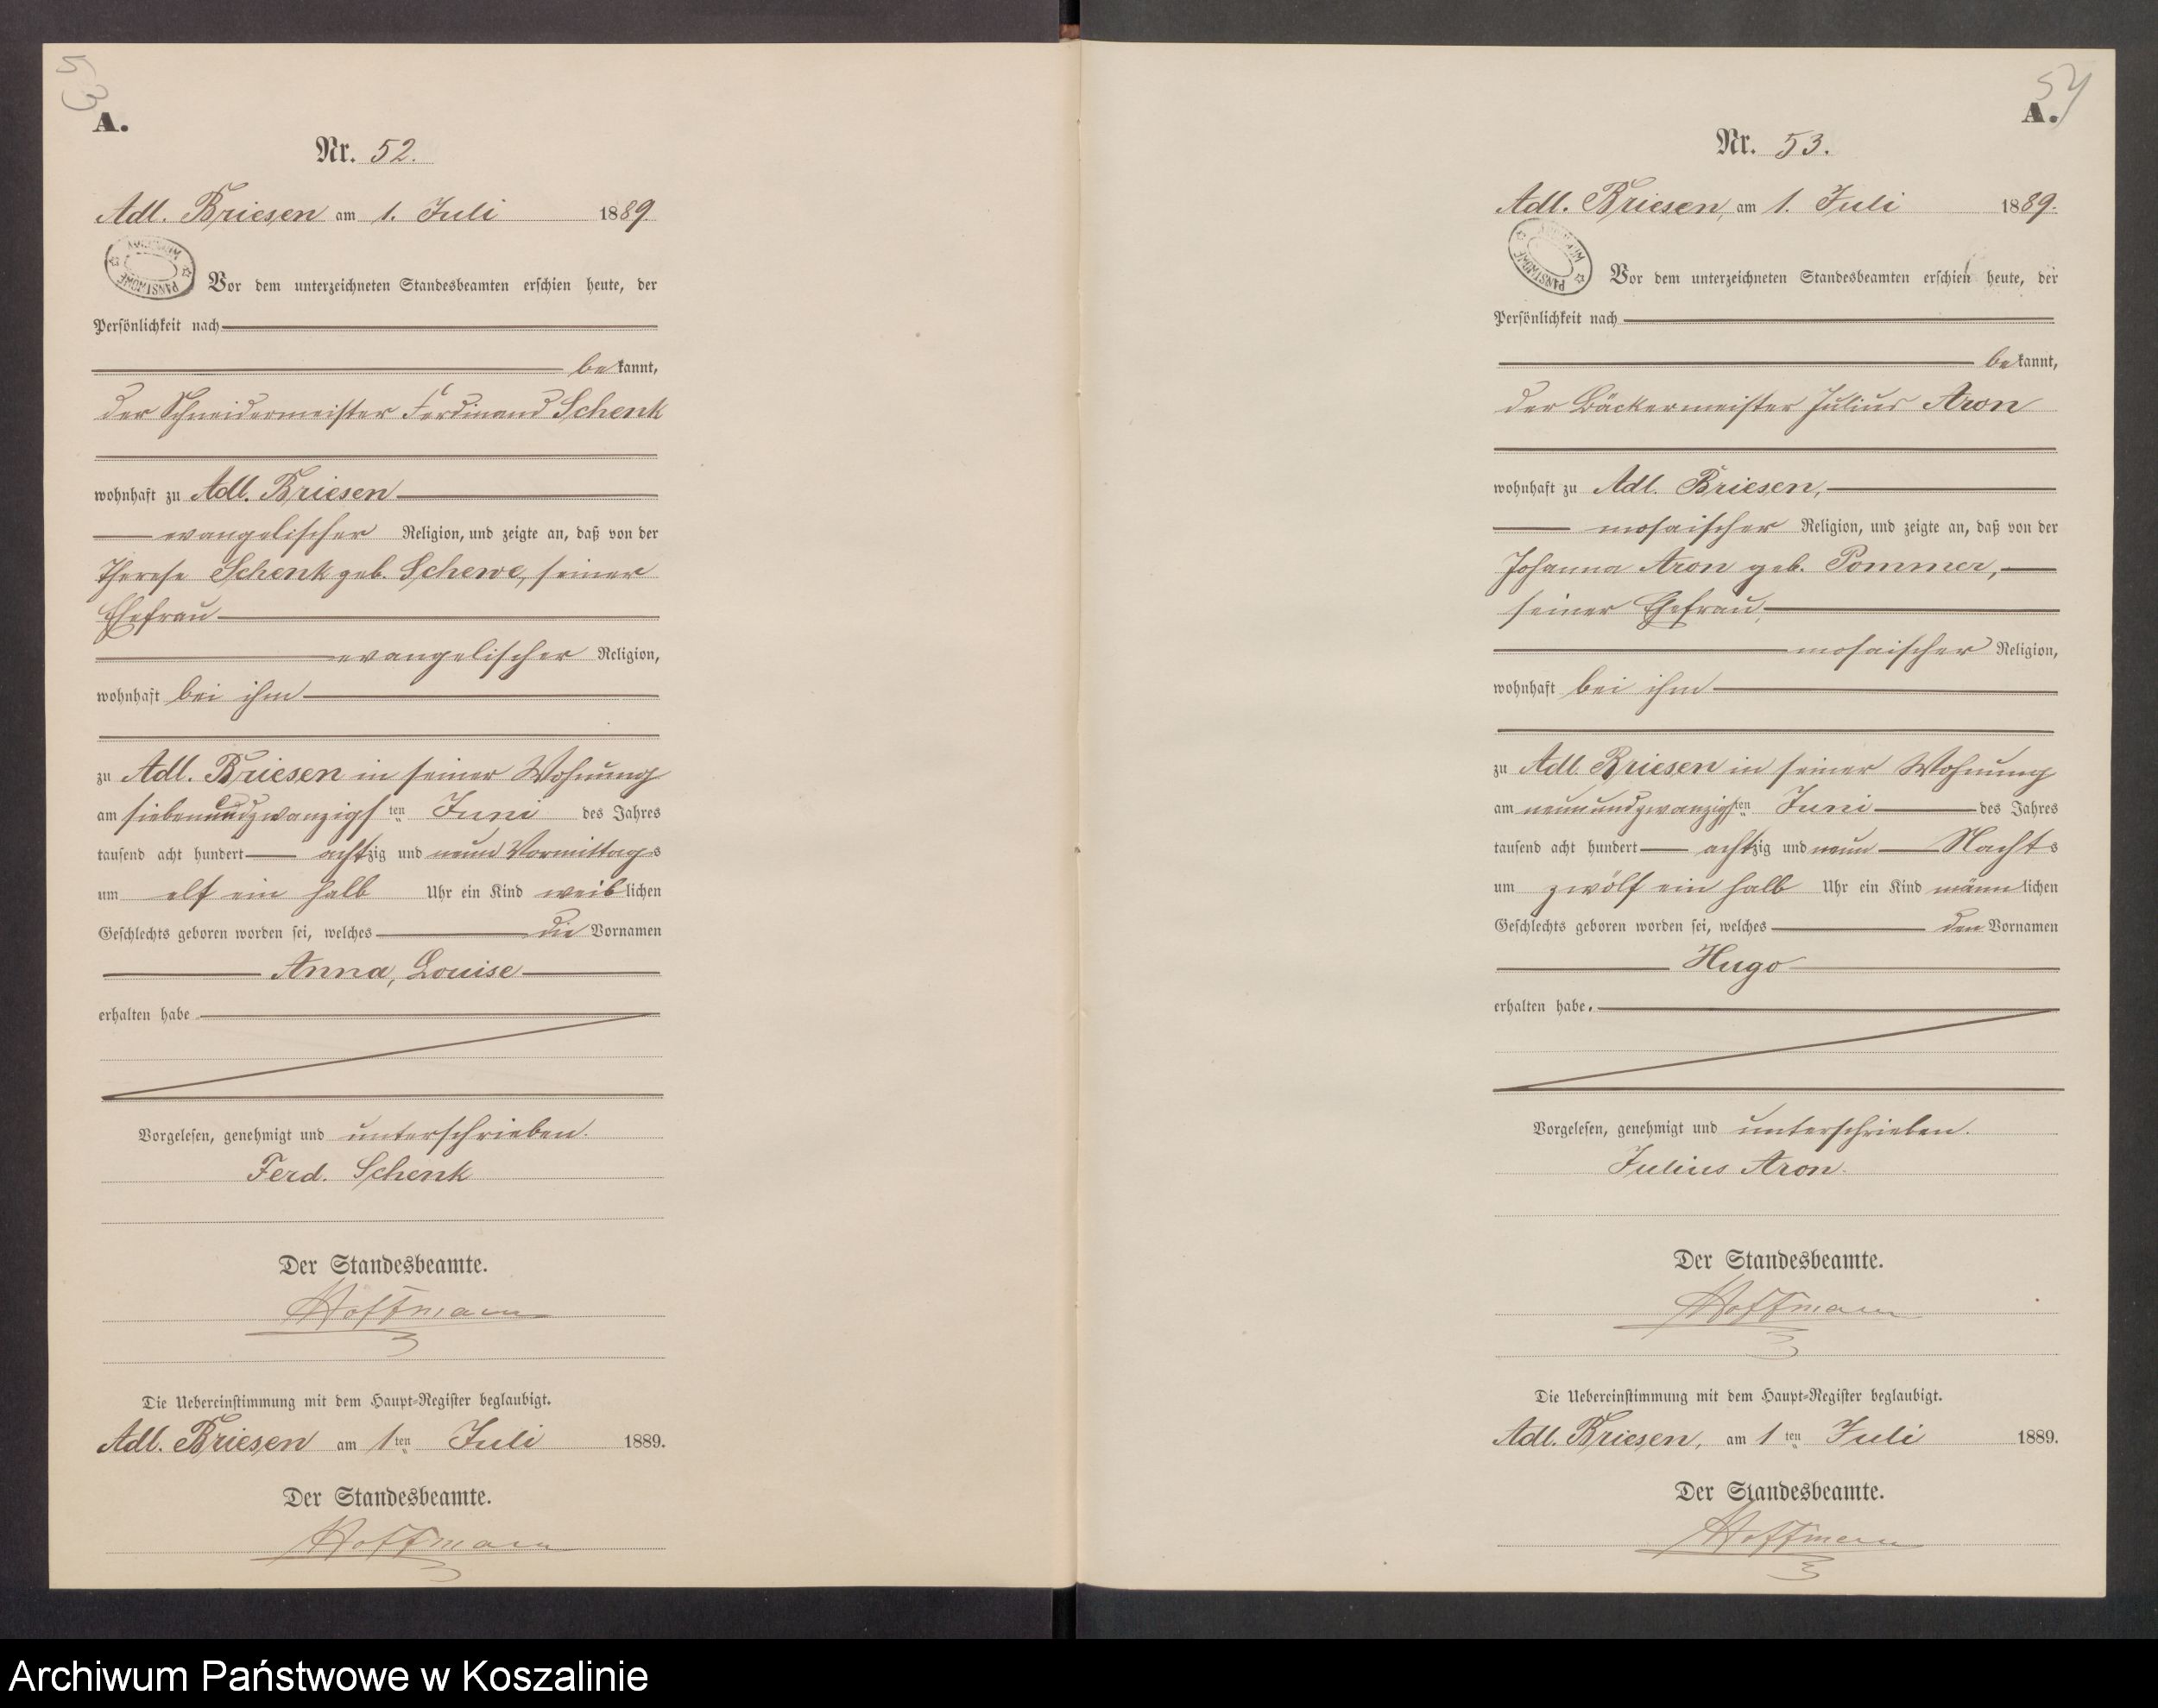 53
A.
Nr. 52.
Adl. Briesen am 1. Juli 1889
Vor dem unterzeichneten Standesbeamten erschien heute, der
Persönlichkeit nach
bekannt,
der Schneidermeister Ferdinand Schenk
wohnhaft zu Adl. Briesen
evangelischer Religion, und zeigte an, daß von der
Therese Schenk geb. Schewe, seiner
Ehefrau
evangelischer Religion,
wohnhaft bei ihm
zu Adl. Briesen in seiner Wohnung
am siebenundzwanzigsten Juni des Jahres
tausend acht hundert achtzig und neun Vormittags
um elf ein halb Uhr ein Kind weiblichen
Geschlechts geboren worden sei, welches die Vornamen
Anna, Louise
erhalten habe
Vorgelesen, genehmigt und unterschrieben.
Ferd. Schenk
Der Standesbeamte.
Hoffmann
Die Uebereinstimmung mit dem Haupt-Register beglaubigt.
Adl. Briesen am 1ten Juli 1889.
Der Standesbeamte.
Hoffmann
54
A.
Nr. 53.
Adl. Briesen, am 1. Juli 1889.
Vor dem unterzeichneten Standesbeamten erschien heute, der
Persönlichkeit nach
bekannt,
der Bäckermeister Julius Aron
wohnhaft zu Adl. Briesen,
mosaischer Religion, und zeigte an, daß von der
Johanna Aron geb. Pommer,
seiner Ehefrau,
mosaischer Religion,
wohnhaft bei ihm
zu Adl. Briesen in seiner Wohnung
am neunundzwanzigsten Juni des Jahres
tausend acht hundert achtzig und neun Nachts
um zwölf ein halb Uhr ein Kind männlichen
Geschlechts geboren worden sei, welches den Vornamen
Hugo
erhalten habe.
Vorgelesen, genehmigt und unterschrieben.
Julius Aron
Der Standesbeamte.
Hoffmann
Die Uebereinstimmung mit dem Haupt-Register beglaubigt.
Adl. Briesen, am 1ten Juli 1889.
Der Standesbeamte.
Hoffmann
Archiwum Państwowe w Koszalinie